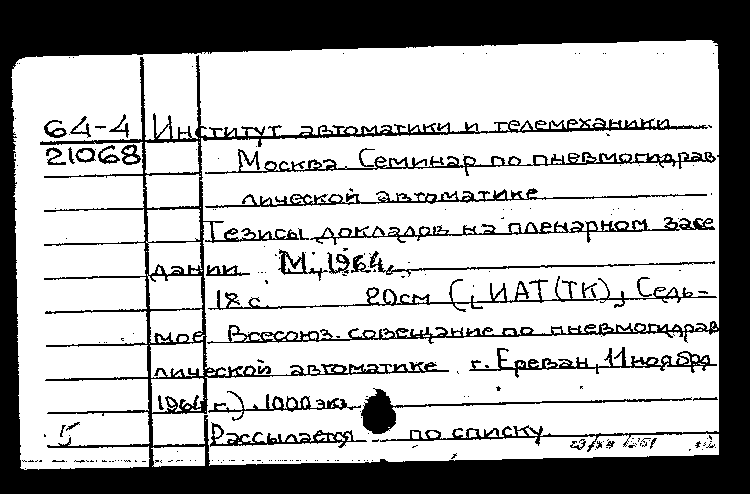 64-4 Институт автоматики и телемеханики
21068 Москва. Семинар по пневмогидрав-
лической автоматике
Тезисы докладов на пленарном засе
дании М., 1964.
18 с. 20см ([ИАТ(ТК)], Седь-
мое Всесоюз. совещание по пневмогидрав
лической автоматике г. Ереван, 11 ноября
1964 г.). 1000 экз.
5 Рассылается по списку